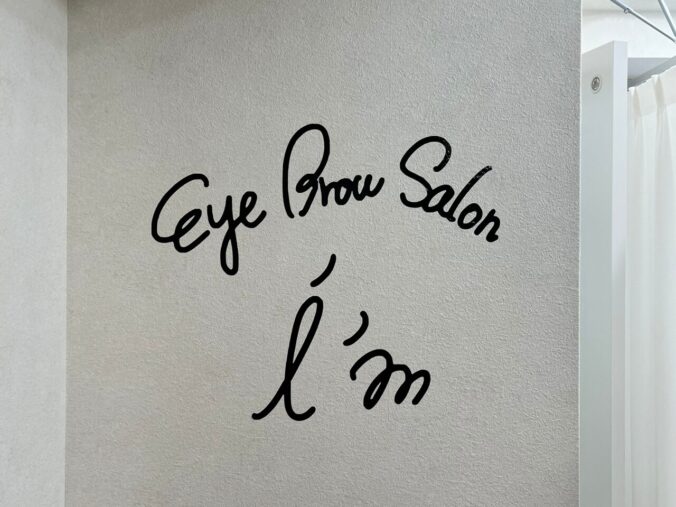 Eye Brow Salon
I'm